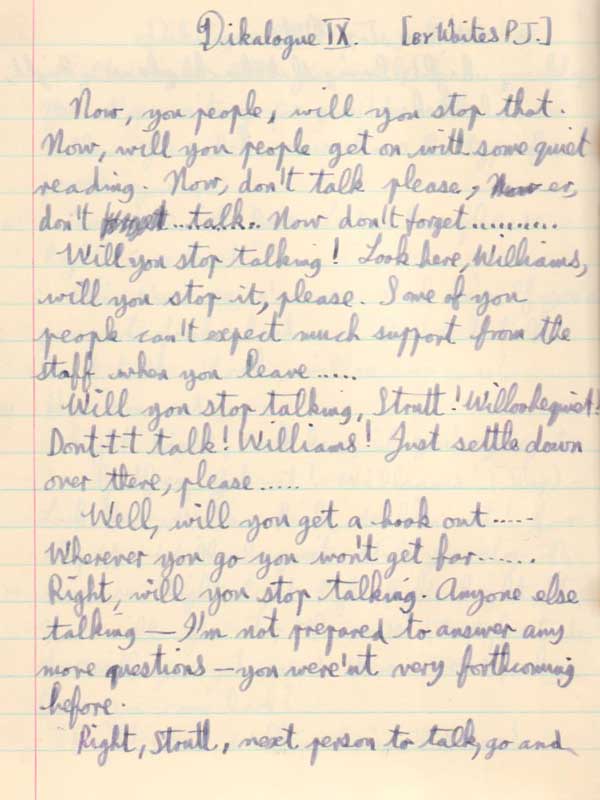 Dikalogue IX. [or Writes P.J.]
Now, you people, will you stop that.
Now, will you people get on with some quiet
reading. Now, don't talk please, Now er,
don't forget ...talk... Now don't forget..........
Will you stop talking! Look here, Williams,
will you stop it, please. Some of you
people can't expect much support from the
staff when you leave.....
Will you stop talking, Strutt!
Dont-t-t talk! Williams! Just settle down
over there, please.....
Well, will you get a book out.....
Wherever you go you won't get far......
Right, will you stop talking. Anyone else
talking — I'm not prepared to answer any
more questions — you were'nt very forthcoming
before.
Right, Strutt, next person to talk, go and